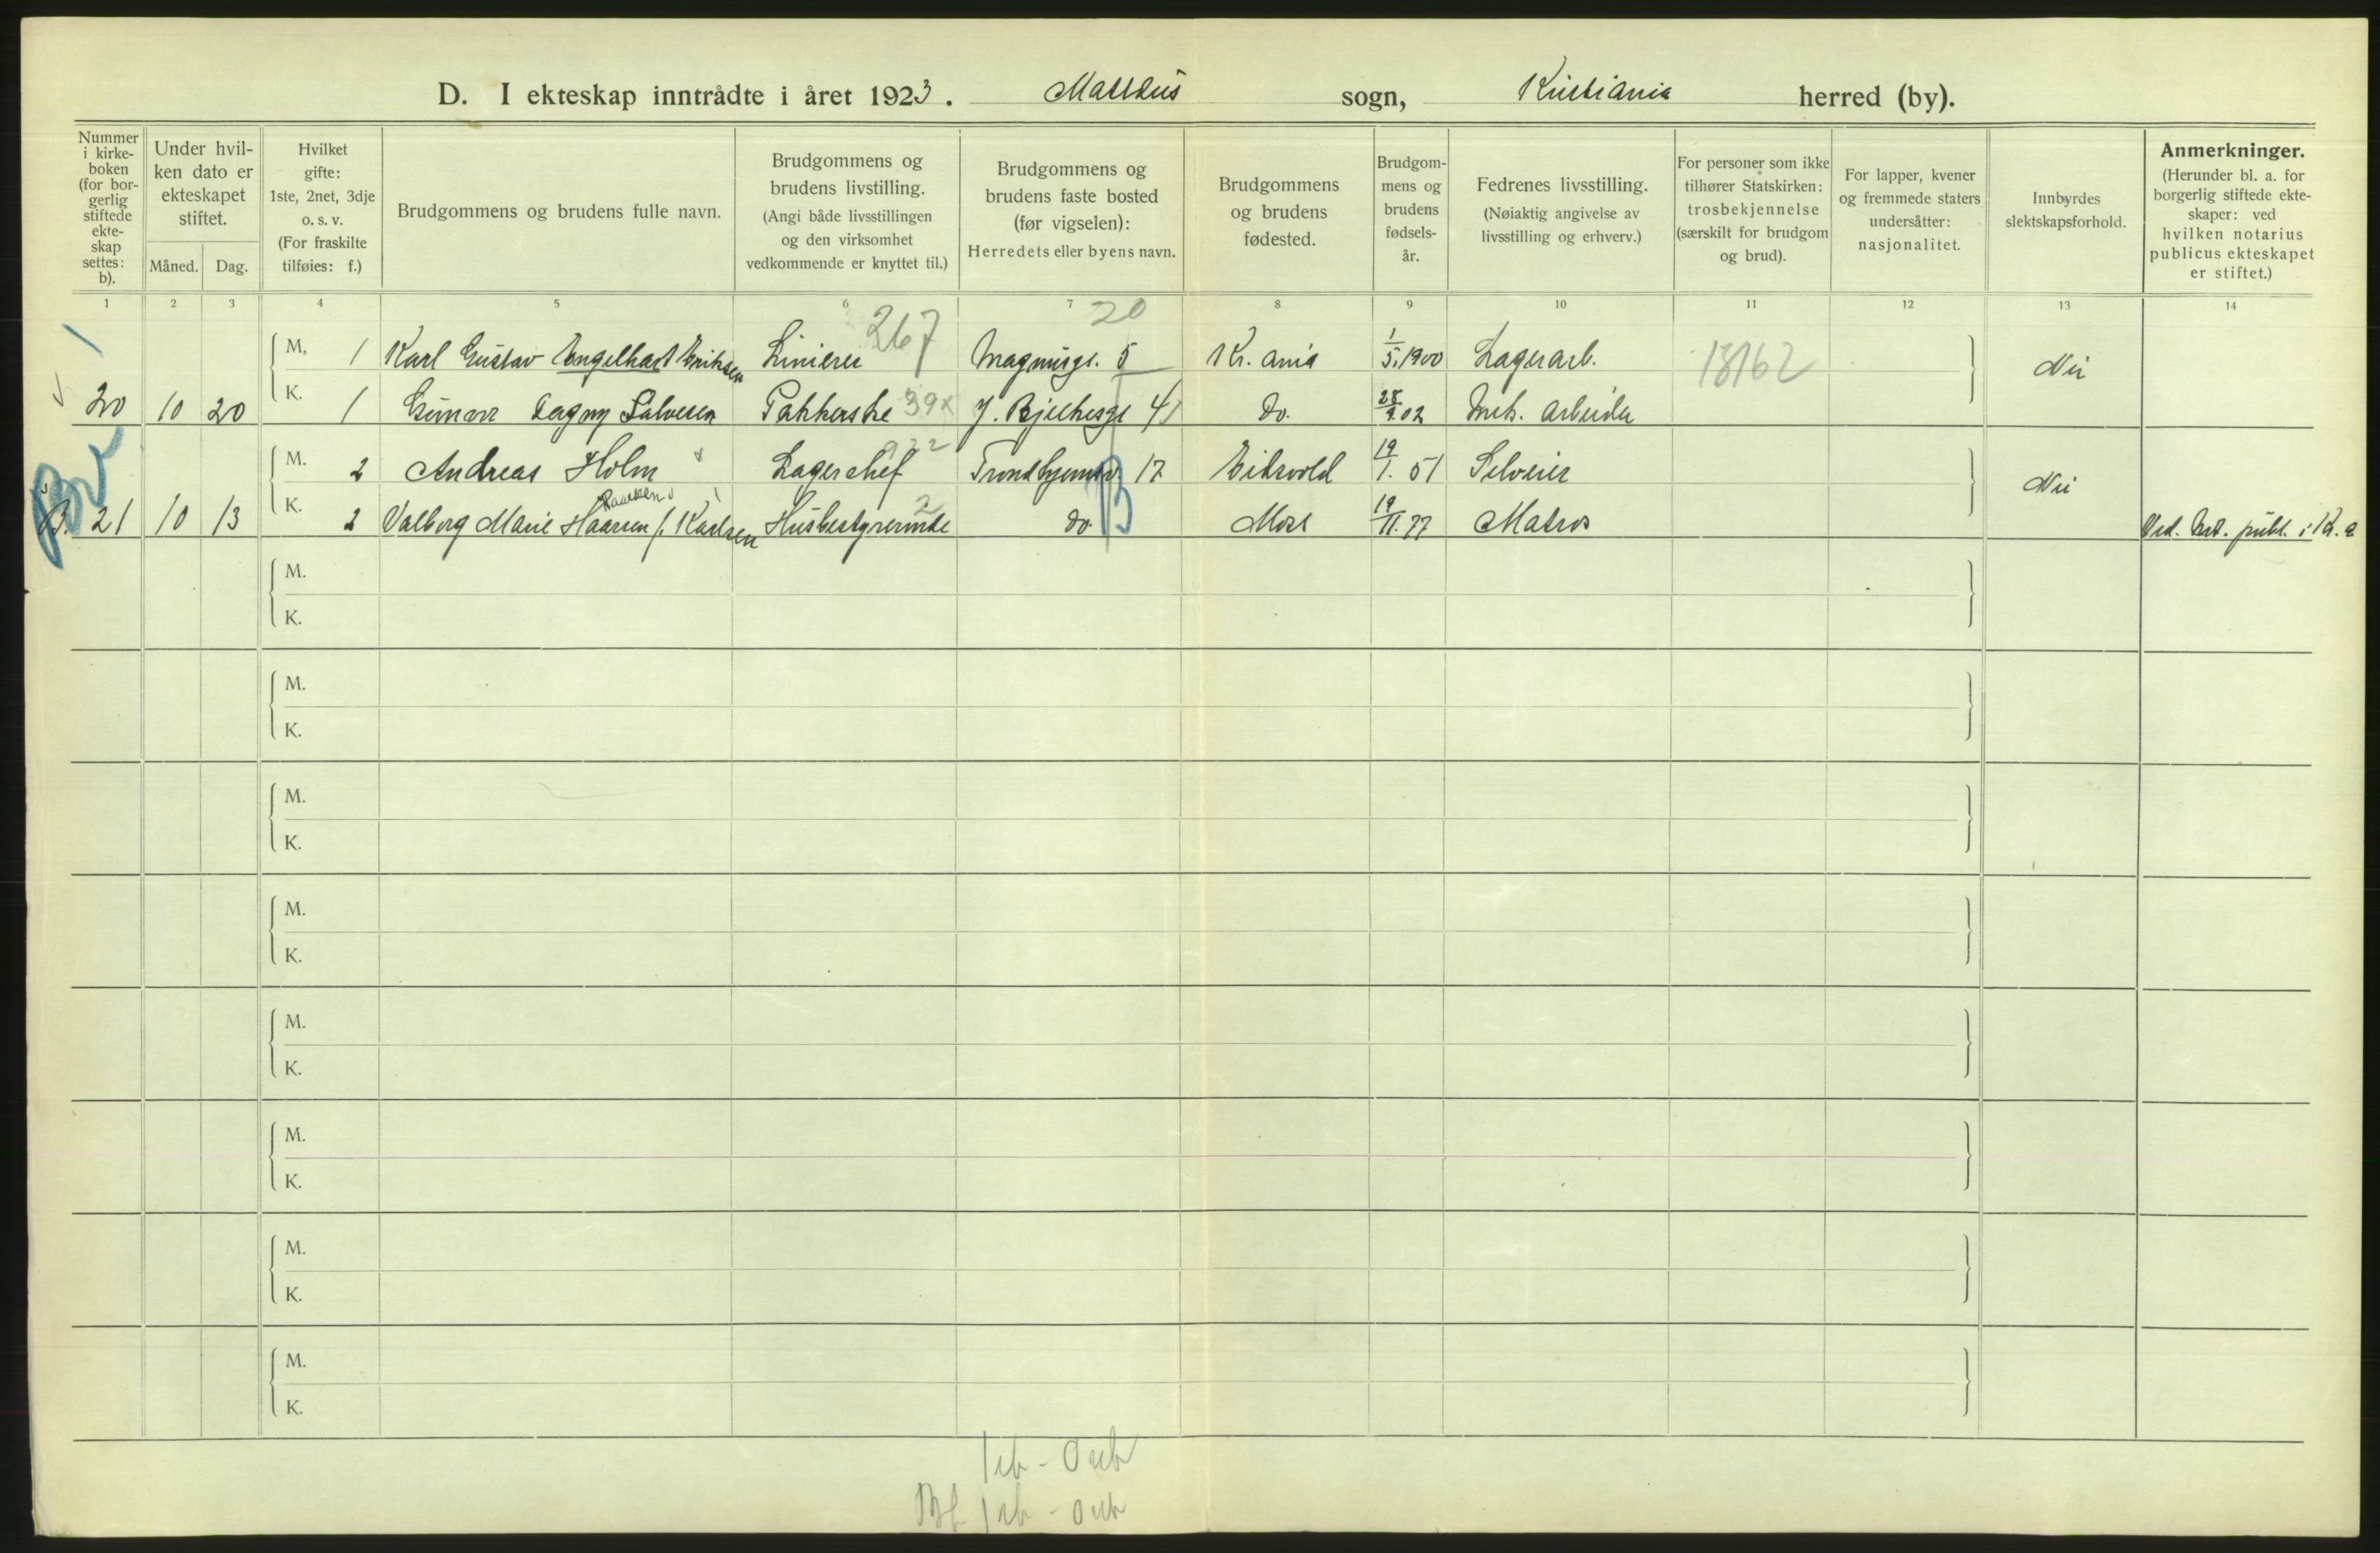 D. I ekteskap inntrådte i året 1923. Matteus sogn, Kristiania herred (by).
Nummer i kirkeboken (for borgerlig stiftede ekteskap settes: b).
Under hvilken dato er ekteskapet stiftet.
Måned. Dag.
Hvilket gifte: 1ste, 2net, 3dje o. s. v. (For fraskilte tilføies: f.)
Brudgommens og brudens fulle navn.
Brudgommens og brudens livstilling. (Angi både livsstillingen og den virksomhet vedkommende er knyttet til.)
Brudgommens og brudens faste bosted (før vigselen): Herredets eller byens navn.
Brudgommens og brudens fødested.
Brudgommens og brudens fødselsår.
Fedrenes livsstilling. (Nøiaktig angivelse av livsstilling og erhverv.)
For personer som ikke tilhører Statskirken: trosbekjennelse (særskilt for brudgom og brud).
For lapper, kvener og fremmede staters undersåtter: nasjonalitet.
Innbyrdes slektskapsforhold.
Anmerkninger. (Herunder bl. a. for borgerlig stiftede ekteskaper: ved hvilken notarius publicus ekteskapet er stiftet.)
1 2 3 4 5 6 7 8 9 10 11 12 13 14
267 20
M. 1 Karl Gustav Engelhart Eriksen Linierer Magnusgt. 5 Kr. ania 1/5. 1900 Lagerarb. 13162 Nei
20 10 20 K. 1 Gunvor Dagny Salvesen Pakkerske 39x J. Bjelkesgt 41 do. 28/9.02 Mek. arbeider
M. 2 Andreas Holm Lagerchef 17 Eidsvold 19/1. 51 Selveier Nei
Paulsen
B. 21 10 13 K. 2 Valborg Marie Haarsen f. Karlsen Husbestyrerinde 2 do. B Moss 19/11. 77 Matros Ved. Not. publ. i Kr. a
M.
K.
M.
K.
M.
K.
M.
K.
M.
K.
M.
K.
M.
K.
M.
K.